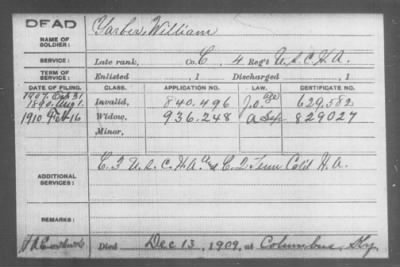 DEAD
NAME OF SOLDIER: Yarber, William
SERVICE: Late rank, Co. C, 4 Reg't U.S.C.H.A.
TERM OF SERVICE: Enlisted , 1 Discharged , 1
DATE OF FILING. CLASS. APPLICATION NO. LAW. CERTIFICATE NO.
1890. Aug 1. Invalid, 840.496 629,582
1910 Feb 16 Widow, 936.248 829027
Minor,
ADDITIONAL SERVICES: C. 3 U.S.C.H.A. & C. 2 Tenn Cold H.A.
REMARKS:
Died Dec 13, 1909, at Columbus, Ky.